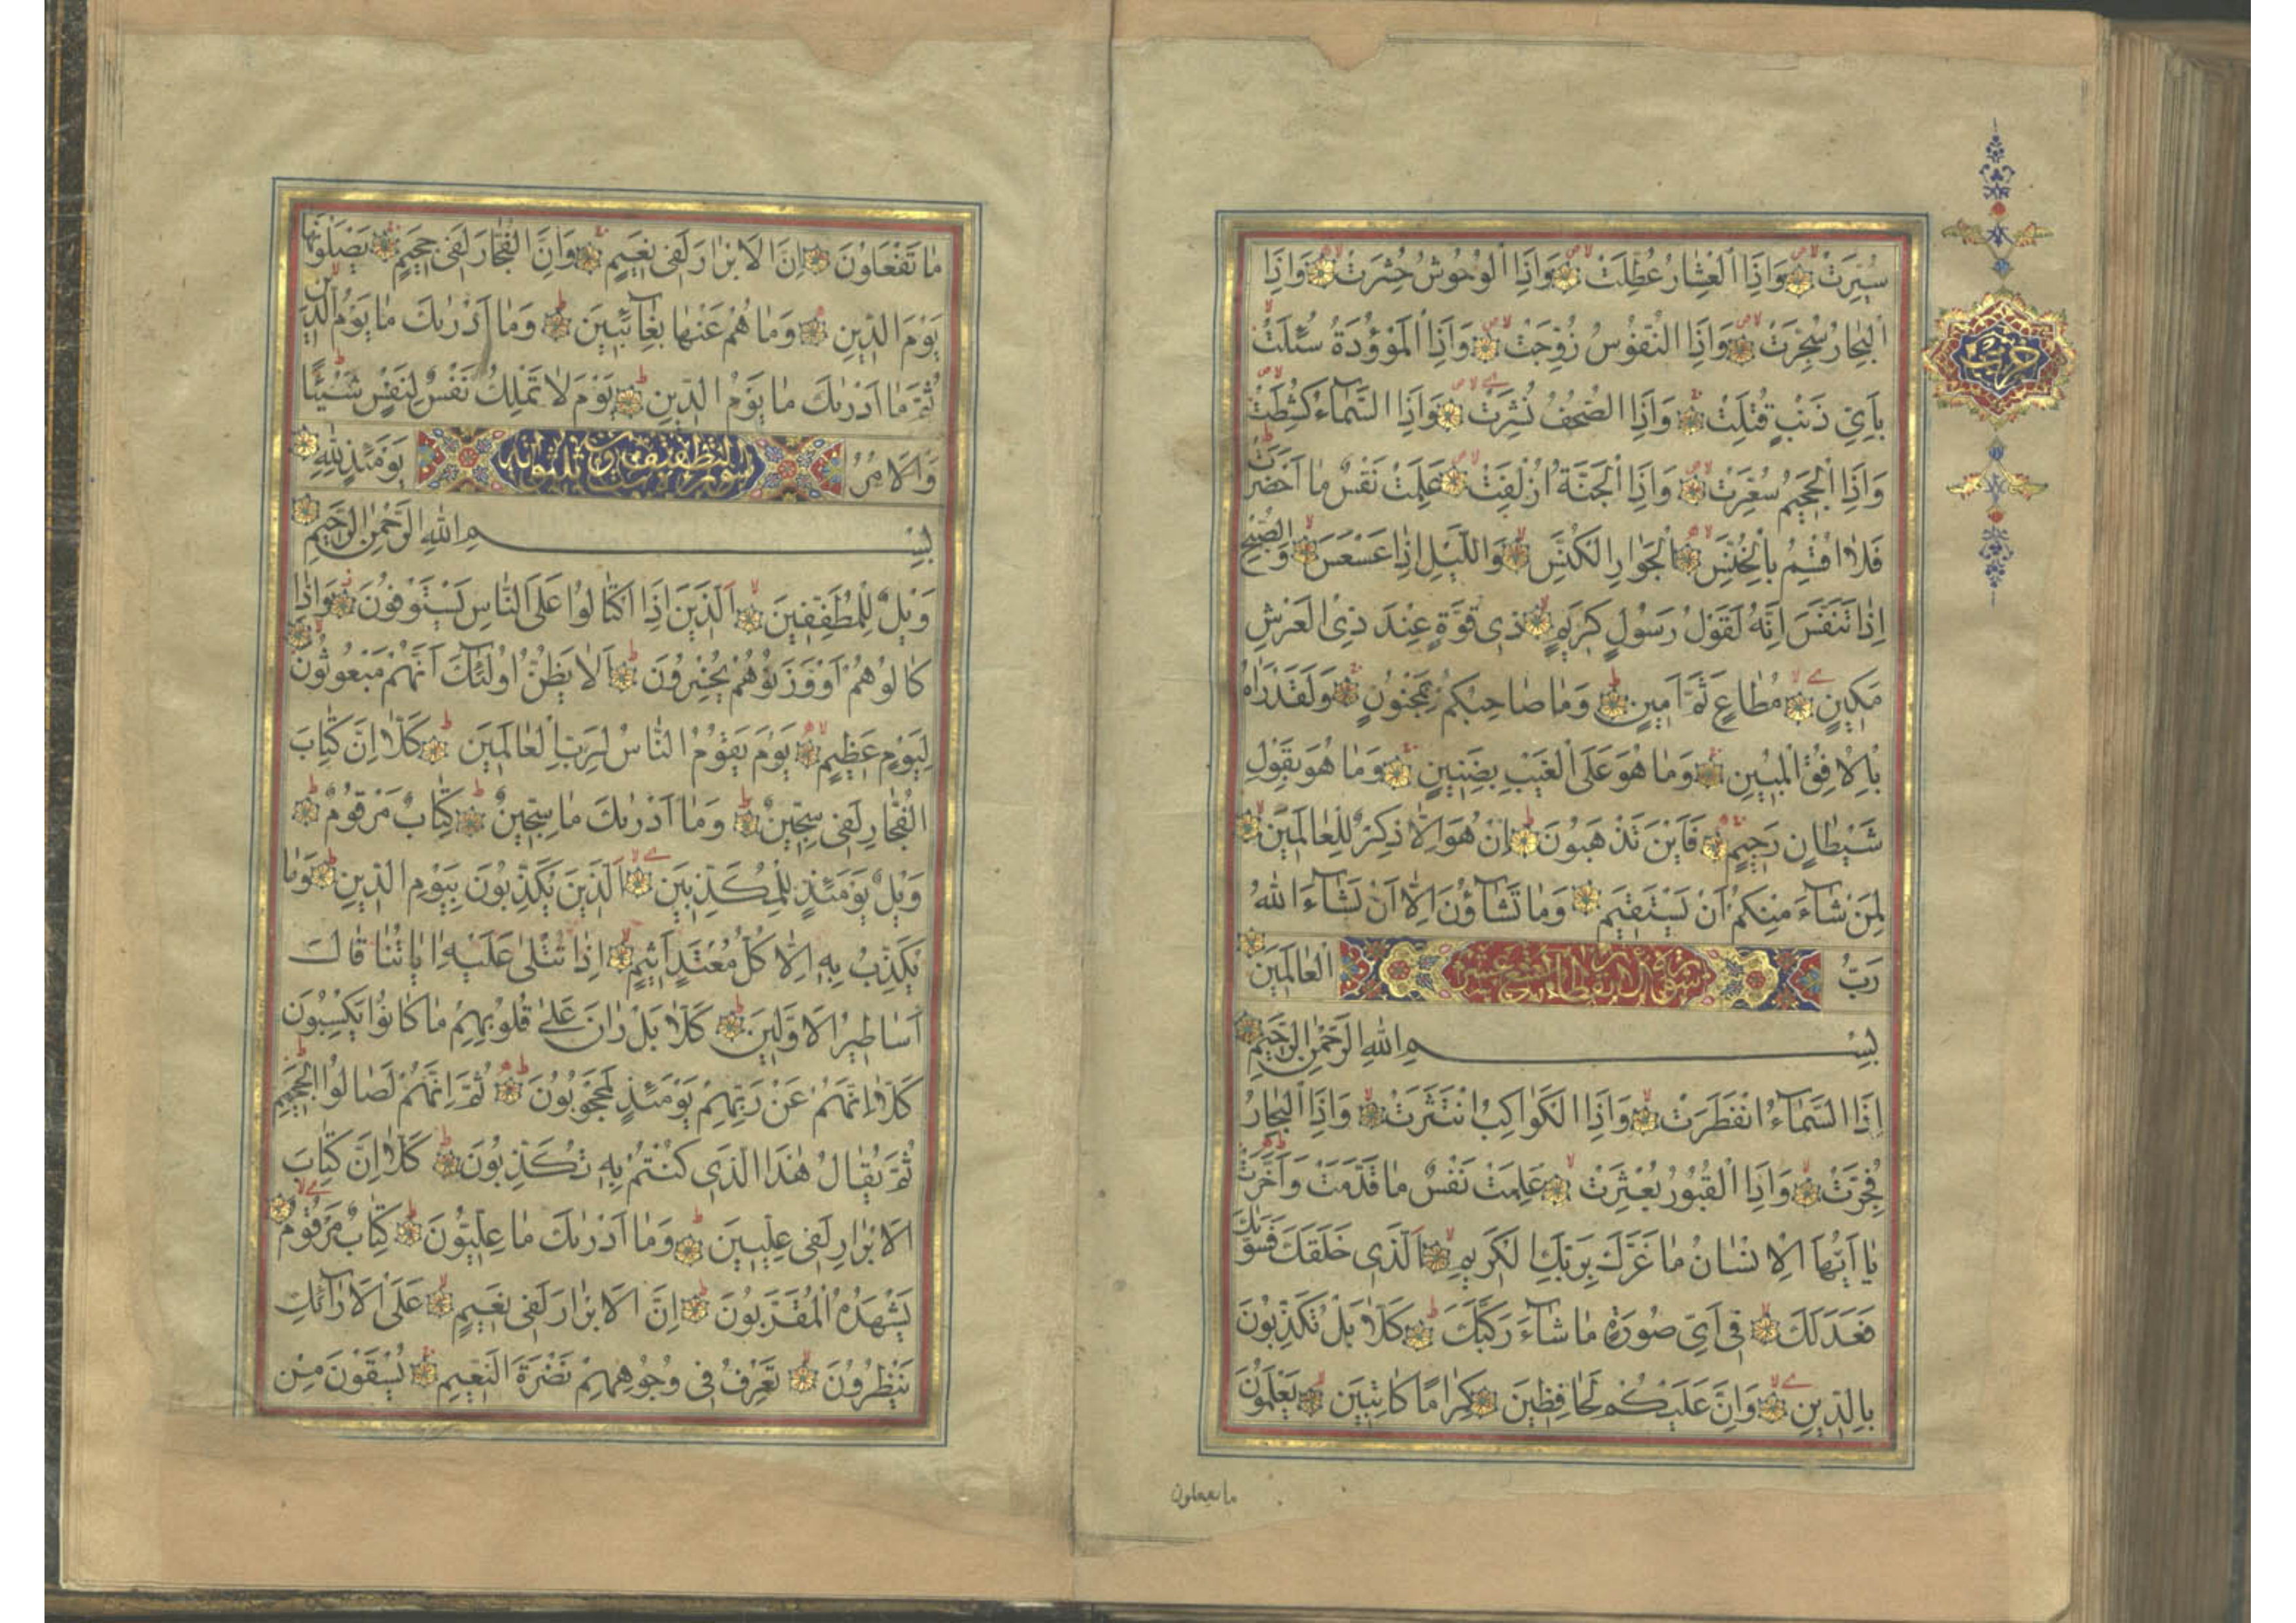 سُيِّرَتْ وَاِذَا الْعِشَارُ عُطِّلَتْ وَاِذَا الْوُحُوشُ حُشِرَتْ وَاِذَا
الْبِحَارُ سُجِّرَتْ وَاِذَا النُّفُوسُ زُوِّجَتْ وَاِذَا الْمَوْؤُدَةُ سُئِلَتْ
بِاَيِّ ذَنْبٍ قُتِلَتْ وَاِذَا الصُّحُفُ نُشِرَتْ وَاِذَا السَّمَآءُ كُشِطَتْ
وَاِذَا الْجَحِيمُ سُعِّرَتْ وَاِذَا الْجَنَّةُ اُزْلِفَتْ عَلِمَتْ نَفْسٌ مَا اَحْضَرَتْ
فَلَا اُقْسِمُ بِالْخُنَّسِ الْجَوَارِ الْكُنَّسِ وَالَّيْلِ اِذَا عَسْعَسَ وَالصُّبْحِ
اِذَا تَنَفَّسَ اِنَّهُ لَقَوْلُ رَسُولٍ كَرِيمٍ ذِى قُوَّةٍ عِنْدَ ذِى الْعَرْشِ
مَكِينٍ مُطَاعٍ ثَمَّ اَمِينٍ وَمَا صَاحِبُكُمْ بِمَجْنُونٍ وَلَقَدْ رَاٰهُ
بِالْاُفُقِ الْمُبِينِ وَمَا هُوَ عَلَى الْغَيْبِ بِضَنِينٍ وَمَا هُوَ بِقَوْلِ
شَيْطَانٍ رَجِيمٍ فَاَيْنَ تَذْهَبُونَ اِنْ هُوَ اِلَّا ذِكْرٌ لِلْعَالَمِينَ
لِمَنْ شَآءَ مِنْكُمْ اَنْ يَسْتَقِيمَ وَمَا تَشَآؤُنَ اِلَّا اَنْ يَشَآءَ اللّٰهُ
رَبُّ الْعَالَمِينَ
بِسْمِ اللّٰهِ الرَّحْمٰنِ الرَّحِيمِ
اِذَا السَّمَآءُ انْفَطَرَتْ وَاِذَا الْكَوَاكِبُ انْتَثَرَتْ وَاِذَا الْبِحَارُ
فُجِّرَتْ وَاِذَا الْقُبُورُ بُعْثِرَتْ عَلِمَتْ نَفْسٌ مَا قَدَّمَتْ وَاَخَّرَتْ
يَا اَيُّهَا الْاِنْسَانُ مَا غَرَّكَ بِرَبِّكَ الْكَرِيمِ اَلَّذِى خَلَقَكَ فَسَوّٰيكَ
فَعَدَلَكَ فِى اَىِّ صُورَةٍ مَا شَآءَ رَكَّبَكَ كَلَّا بَلْ تُكَذِّبُونَ
بِالدِّينِ وَاِنَّ عَلَيْكُمْ لَحَافِظِينَ كِرَامًا كَاتِبِينَ يَعْلَمُونَ
ما تفعلون
مَا تَفْعَلُونَ اِنَّ الْاَبْرَارَ لَفِى نَعِيمٍ وَاِنَّ الْفُجَّارَ لَفِى جَحِيمٍ يَصْلَوْنَهَا
يَوْمَ الدِّينِ وَمَا هُمْ عَنْهَا بِغَآئِبِينَ وَمَا اَدْرٰيكَ مَا يَوْمُ الدِّينِ
ثُمَّ مَا اَدْرٰيكَ مَا يَوْمُ الدِّينِ يَوْمَ لَا تَمْلِكُ نَفْسٌ لِنَفْسٍ شَيْئًا
وَالْاَمْرُ يَوْمَئِذٍ لِلّٰهِ
بِسْمِ اللّٰهِ الرَّحْمٰنِ الرَّحِيمِ
وَيْلٌ لِلْمُطَفِّفِينَ اَلَّذِينَ اِذَا اكْتَالُوا عَلَى النَّاسِ يَسْتَوْفُونَ وَاِذَا
كَالُوهُمْ اَوْ وَزَنُوهُمْ يُخْسِرُونَ اَلَا يَظُنُّ اُولٰٓئِكَ اَنَّهُمْ مَبْعُوثُونَ
لِيَوْمٍ عَظِيمٍ يَوْمَ يَقُومُ النَّاسُ لِرَبِّ الْعَالَمِينَ كَلَّا اِنَّ كِتَابَ
الْفُجَّارِ لَفِى سِجِّينٍ وَمَا اَدْرٰيكَ مَا سِجِّينٌ كِتَابٌ مَرْقُومٌ
وَيْلٌ يَوْمَئِذٍ لِلْمُكَذِّبِينَ اَلَّذِينَ يُكَذِّبُونَ بِيَوْمِ الدِّينِ وَمَا
يُكَذِّبُ بِهِ اِلَّا كُلُّ مُعْتَدٍ اَثِيمٍ اِذَا تُتْلٰى عَلَيْهِ اٰيَاتُنَا قَالَ
اَسَاطِيرُ الْاَوَّلِينَ كَلَّا بَلْ رَانَ عَلٰى قُلُوبِهِمْ مَا كَانُوا يَكْسِبُونَ
كَلَّا اِنَّهُمْ عَنْ رَبِّهِمْ يَوْمَئِذٍ لَمَحْجُوبُونَ ثُمَّ اِنَّهُمْ لَصَالُوا الْجَحِيمِ
ثُمَّ يُقَالُ هٰذَا الَّذِى كُنْتُمْ بِهِ تُكَذِّبُونَ كَلَّا اِنَّ كِتَابَ
الْاَبْرَارِ لَفِى عِلِّيِّينَ وَمَا اَدْرٰيكَ مَا عِلِّيُّونَ كِتَابٌ مَرْقُومٌ
يَشْهَدُهُ الْمُقَرَّبُونَ اِنَّ الْاَبْرَارَ لَفِى نَعِيمٍ عَلَى الْاَرَآئِكِ
يَنْظُرُونَ تَعْرِفُ فِى وُجُوهِهِمْ نَضْرَةَ النَّعِيمِ يُسْقَوْنَ مِنْ